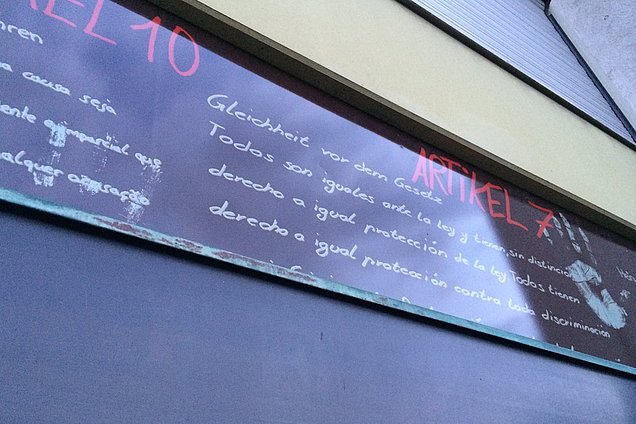 KEL 10
hren
a causa seja
qualquer acusação
ARTIKEL 7
Gleichheit vor dem Gesetz
Todos son iguales ante la ley y tienen, sin distinción
derecho a igual protección de la ley. Todos tienen
derecho a igual protección contra toda discriminación